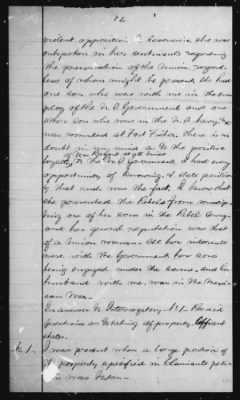 12
violent opposition to Secession. She was
outspoken in her sentiments regarding
the preservation of the Union regard-
less of whom might be present. She had
one son who was with me in the em-
ploy of the U.S. Government and one
other son who was in the U.S. Navy &
was wounded at Fort Fisher. There is no
doubt in my mind as to the positive
loyalty of to the U.S. Government. I had every
at all times
opportunity of knowing & state positive-
ly that such was the fact. I know that
she prevented the Rebels from conscrip-
ting one of her sons in the Rebel Army
and her general reputation was that
of a Union woman. All her interests
were with the Government her sons
being engaged under the same, and her
husband with me, was in the Mexi-
can War.
In answer to Interrogatory No 1. Revised
questions on taking of property, affiant
states.
No 1. I was present when a large portion of
the property specified in Claimants peti-
tion was taken.